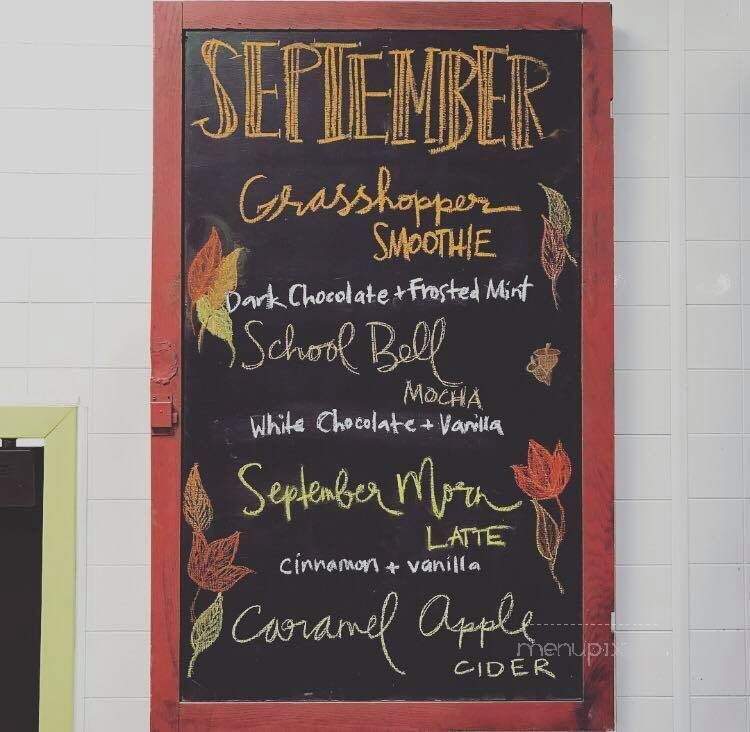 SEPTEMBER
Grasshopper
SMOOTHIE
Dark Chocolate + Frosted Mint
School Bell
MOCHA
White Chocolate + Vanilla
September Morn
LATTE
cinnamon + vanilla
Caramel Apple
CIDER
menupix